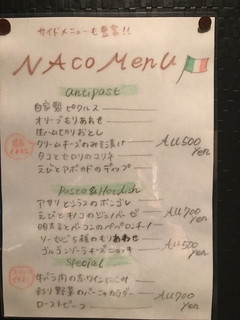 サイドメニューも豊富!!
NACO MENU
antipast
自家製ピクルス
オリーブもりあわせ
生ハム切りおとし
クリームチーズのみそ漬け
タコとセロリのマリネ
えびとアボカドのディップ
ALL 500 yen
Pasta & Hotdish
アサリとシラスのボンゴレ
えびとキノコのジェノベーゼ
明太子とベーコンのペペロンチーノ
ALL 700 yen
ソーセージ5種のもりあわせ
ゴルゴンゾーラチーズニョッキ
ALL 500 yen
Special
牛バラ肉の赤ワインにこみ
彩り野菜のバーニャカウダー
ローストビーフ
ALL 700 yen